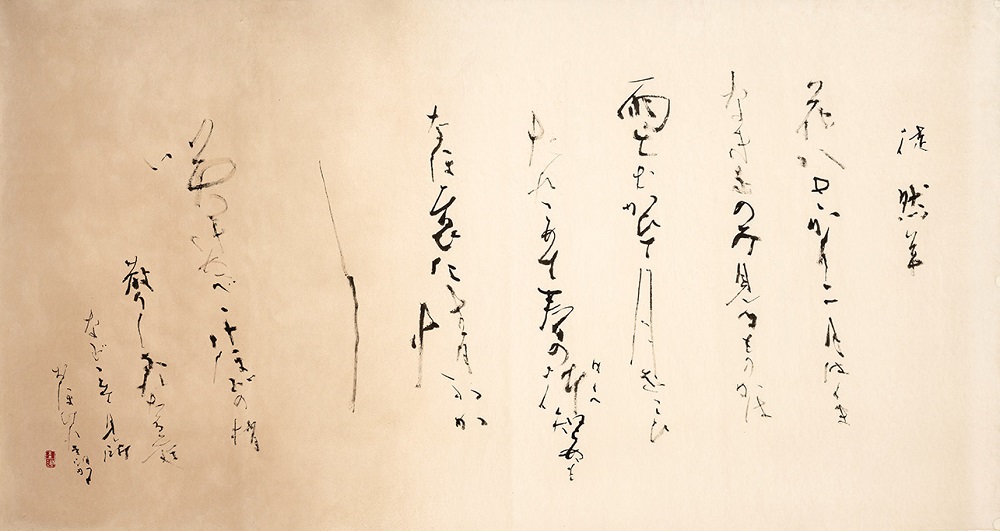 徒然草
花はさかりに月はくま
なきをのみ見るものかは
雨にむかひて月をこひ
たれこめて春のゆくへ知らぬも
なほ哀に情ふか
し
咲きぬべきほどの梢
散りしをれたる庭
などこそ見所
おほけれ